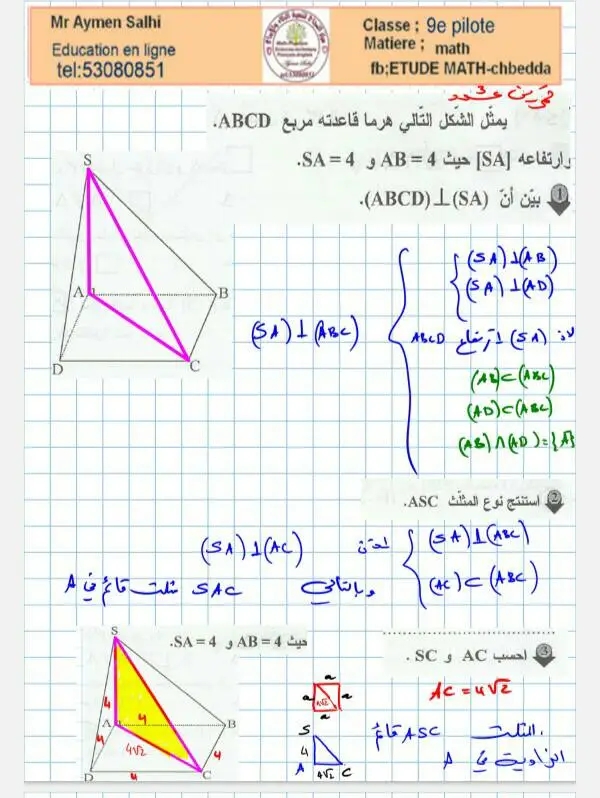 Mr Aymen Salhi
Education en ligne
tel:53080851
Classe ; 9e pilote
Matiere ; math
fb;ETUDE MATH-chbedda
تمرين عدد 3
يمثّل الشّكل التّالي هرما قاعدته مربع ABCD.
وارتفاعه [SA] حيث AB = 4 و SA = 4.
1 بيّن أنّ (SA)⊥(ABCD).
S
A
B
D
C
(SA)⊥(AB)
(SA)⊥(AD)
لان (SA) ارتفاع ABCD
(SA)⊥(ABC)
(AB)⊂(ABC)
(AD)⊂(ABC)
(AB)∩(AD)={A}
2 استنتج نوع المثلّث ASC.
(SA)⊥(ABC)
(AC)⊂(ABC)
(SA)⊥(AC)
وبالتالي SAC مثلث قائم في A
حيث AB = 4 و SA = 4.
3 احسب AC و SC .
AC = 4√2
المثلث ASC قائم
الزاوية في A
S
A
B
D
C
4
4
4
4
4
4√2
a
a
a
a
4√2
S
4
A
4√2
C